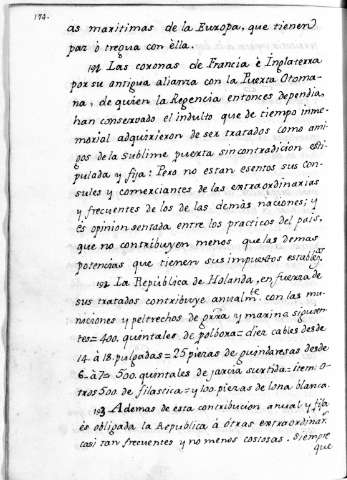 172.
as maritimas de la Europa, que tienen
paz ò tregua con èlla.
191 Las coronas de Francia è Inglaterra
por su antigua alianza con la Puerta Otoma-
na, de quien la Regencia entonces dependia,
han conservado el indulto que de tiempo inme-
morial adquirieron de ser tratados como ami-
gos de la Sublime puerta sin contradicion esti-
pulada y fija: Pero no estan esentos sus con-
sules y comerciantes de las extraordinarias
y frecuentes de los de las demàs naciones; y
és opinion sentada entre los practicos del pais,
que no contribuyen menos que las demas
potencias que tienen sus impuestos establez.os
192 La Republica de Holanda, en fuerza de
sus tratados contribuye anualm.te con las mu-
niciones y peltrechos de grra y marina siguien-
tes = 400. quintales de polbora = diez cables desde
14 à 18. pulgadas = 25 piezas de guindaresas desde
6 à 7 = 500. quintales de jarcia surtida = item: o-
tros 500 de filastica = y 100 piezas de lona blanca.
193 Ademas de esta contribucion anual y fija
ès obligada la Republica à otras extraordinar.s
casi tan frecuentes y no menos costosas. Siempre
que